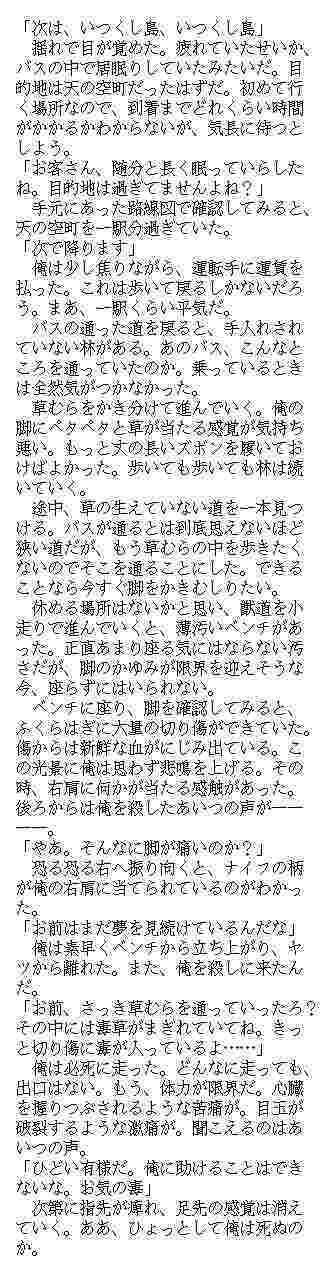 「次は、いつくし島、いつくし島」
　揺れで目が覚めた。疲れていたせいか、
バスの中で居眠りしていたみたいだ。目
的地は天の空町だったはずだ。初めて行
く場所なので、到着までどれくらい時間
がかかるかわからないが、気長に待つと
しよう。
「お客さん、随分と長く眠っていらした
ね。目的地は過ぎてませんよね？」
　手元にあった路線図で確認してみると、
天の空町を一駅分過ぎていた。
「次で降ります」
　俺は少し焦りながら、運転手に運賃を
払った。これは歩いて戻るしかないだろ
う。まあ、一駅くらい平気だ。
　バスの通った道を戻ると、手入れされ
ていない林がある。あのバス、こんなと
ころを通っていたのか。乗っているとき
は全然気がつかなかった。
　草むらをかき分けて進んでいく。俺の
脚にペタペタと草が当たる感覚が気持ち
悪い。もっと丈の長いズボンを履いてお
けばよかった。歩いても歩いても林は続
いていく。
　途中、草の生えていない道を一本見つ
ける。バスが通るとは到底思えないほど
狭い道だが、もう草むらの中を歩きたく
ないのでそこを通ることにした。できる
ことなら今すぐ脚をかきむしりたい。
　休める場所はないかと思い、獣道を小
走りで進んでいくと、薄汚いベンチがあ
った。正直あまり座る気にはならない汚
さだが、脚のかゆみが限界を迎えそうな
今、座らずにはいられない。
　ベンチに座り、脚を確認してみると、
ふくらはぎに大量の切り傷ができていた。
傷からは新鮮な血がにじみ出ている。こ
の光景に俺は思わず悲鳴を上げる。その
時、右肩に何かが当たる感触があった。
後ろからは俺を殺したあいつの声が――
――。
「やあ。そんなに脚が痛いのか？」
　恐る恐る右へ振り向くと、ナイフの柄
が俺の右肩に当てられているのがわかっ
た。
「お前はまだ夢を見続けているんだな」
　俺は素早くベンチから立ち上がり、ヤ
ツから離れた。また、俺を殺しに来たん
だ。
「お前、さっき草むらを通っていったろ？
その中には毒草がまぎれていてね。きっ
と切り傷に毒が入っているよ……」
　俺は必死に走った。どんなに走っても、
出口はない。もう、体力が限界だ。心臓
を握りつぶされるような苦痛が。目玉が
破裂するような激痛が。聞こえるのはあ
いつの声。
「ひどい有様だ。俺に助けることはでき
ないな。お気の毒」
　次第に指先が痺れ、足先の感覚は消え
ていく。ああ、ひょっとして俺は死ぬの
か。